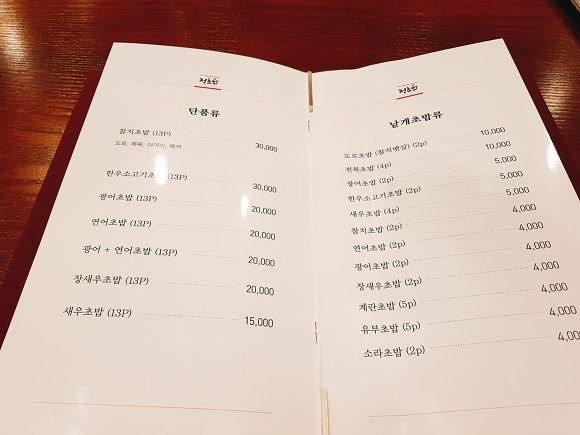 정초밥
단품류
참치초밥 (13P) 30,000
한우소고기초밥 (13P) 30,000
광어초밥 (13P) 20,000
연어초밥 (13P) 20,000
광어 + 연어초밥 (13P) 20,000
장새우초밥 (13P) 20,000
새우초밥 (13P) 15,000
정초밥
낱개초밥류
도로초밥 (참치뱃살) (2p) 10,000
전복초밥 (4p) 10,000
장어초밥 (2p) 5,000
한우소고기초밥 (2p) 5,000
새우초밥 (4p) 5,000
참치초밥 (2p) 4,000
연어초밥 (2p) 4,000
광어초밥 (2p) 4,000
장새우초밥 (2p) 4,000
계란초밥 (5p) 4,000
유부초밥 (5p) 4,000
소라초밥 (2p) 4,000